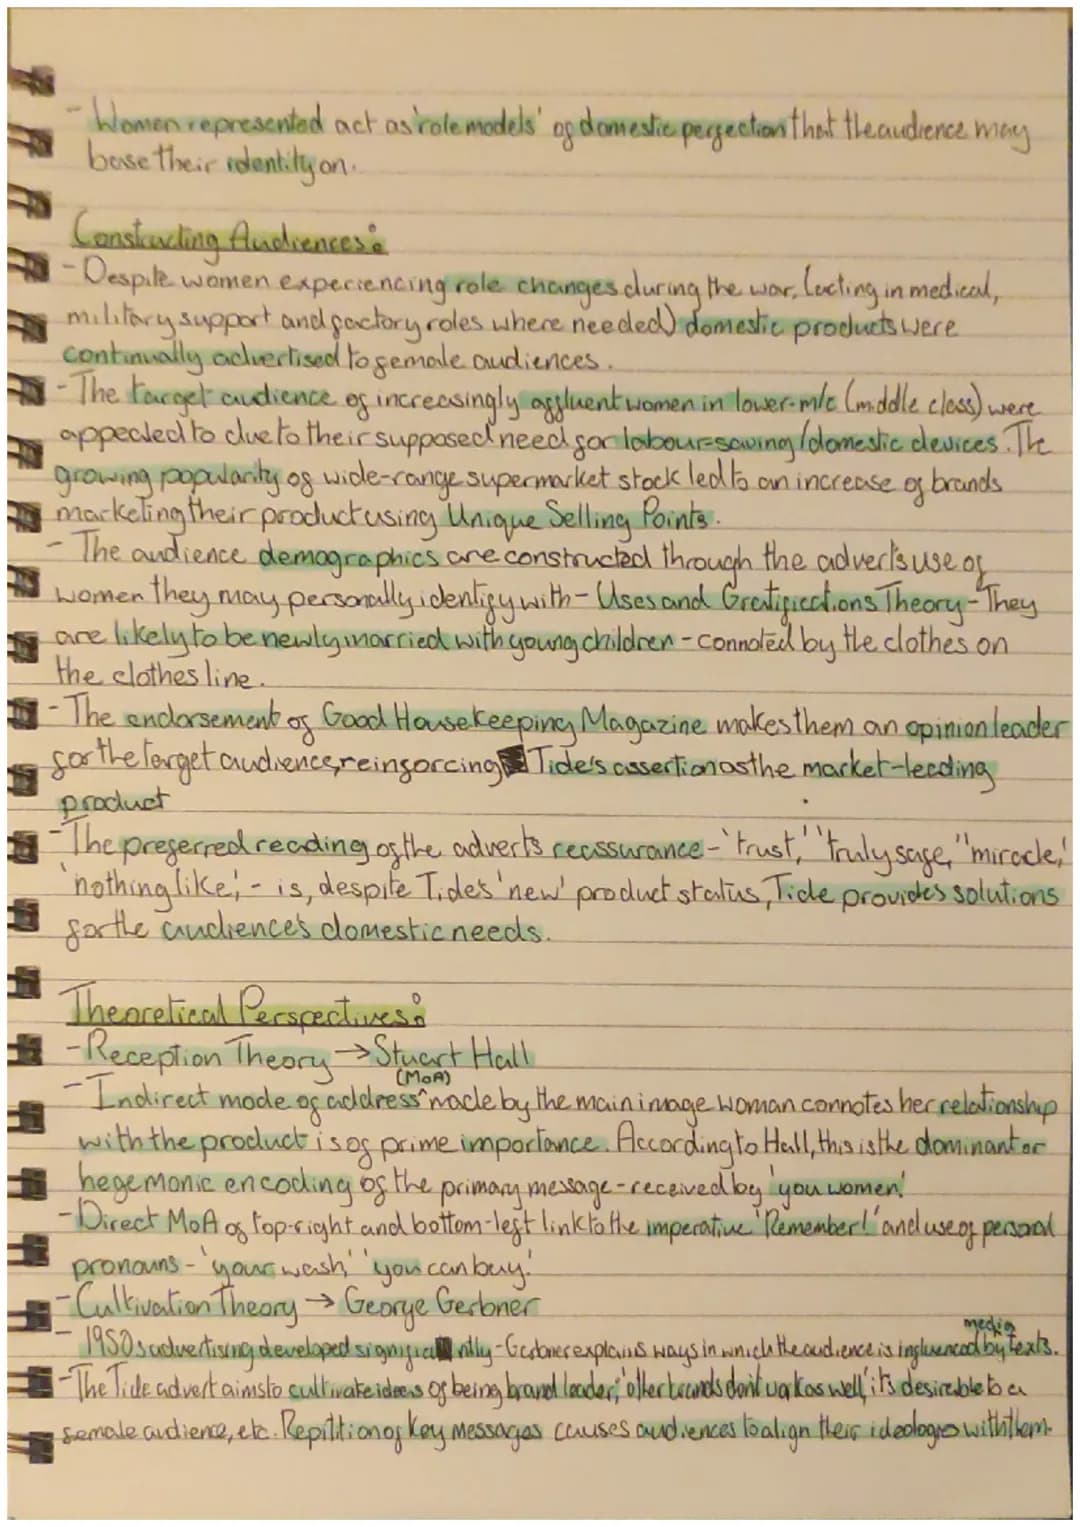 - Women represented act as 'role models' of domestic perfection that the audience may
base their identity on.
Constructing Audiences:
- Despite women experiencing role changes during the war, (acting in medical,
military support and factory roles where needed) domestic products were
continually advertised to female audiences.
- The target audience of increasingly affluent women in lower-m/c (middle class) were
appealed to due to their supposed need for labour-saving/domestic devices. The
growing popularity of wide-range supermarket stock led to an increase of brands
marketing their product using Unique Selling Points.
- The audience demographics are constructed through the advert's use of
women they may personally identify with - Uses and Gratifications Theory - They
are likely to be newly married with young children - connoted by the clothes on
the clothes line.
- The endorsement of Good Housekeeping Magazine makes them an opinion leader
for the target audience, reinforcing Tide's assertion as the market-leading
product
- The preferred reading of the adverts reassurance - 'trust,' 'truly safe,' 'miracle,'
'nothing like,' - is, despite Tide's 'new' product status, Tide provides solutions
for the audience's domestic needs.
Theoretical Perspectives:
- Reception Theory → Stuart Hall
- Indirect mode of address (MoA) made by the main image woman connotes her relationship
with the product is of prime importance. According to Hall, this is the dominant or
hegemonic encoding of the primary message - received by 'you women.'
- Direct MoA of top-right and bottom-left link to the imperative 'Remember!' and use of personal
pronouns - 'your wash,' 'you can buy.'
- Cultivation Theory → George Gerbner
- 1950s advertising developed significantly - Gerbner explains ways in which the audience is influenced by media texts.
- The Tide advert aims to cultivate ideas of being brand leader; 'other brands don't work as well,' it's desireable to a
female audience, etc. Repitition of key messages causes audiences to align their ideologies with them.